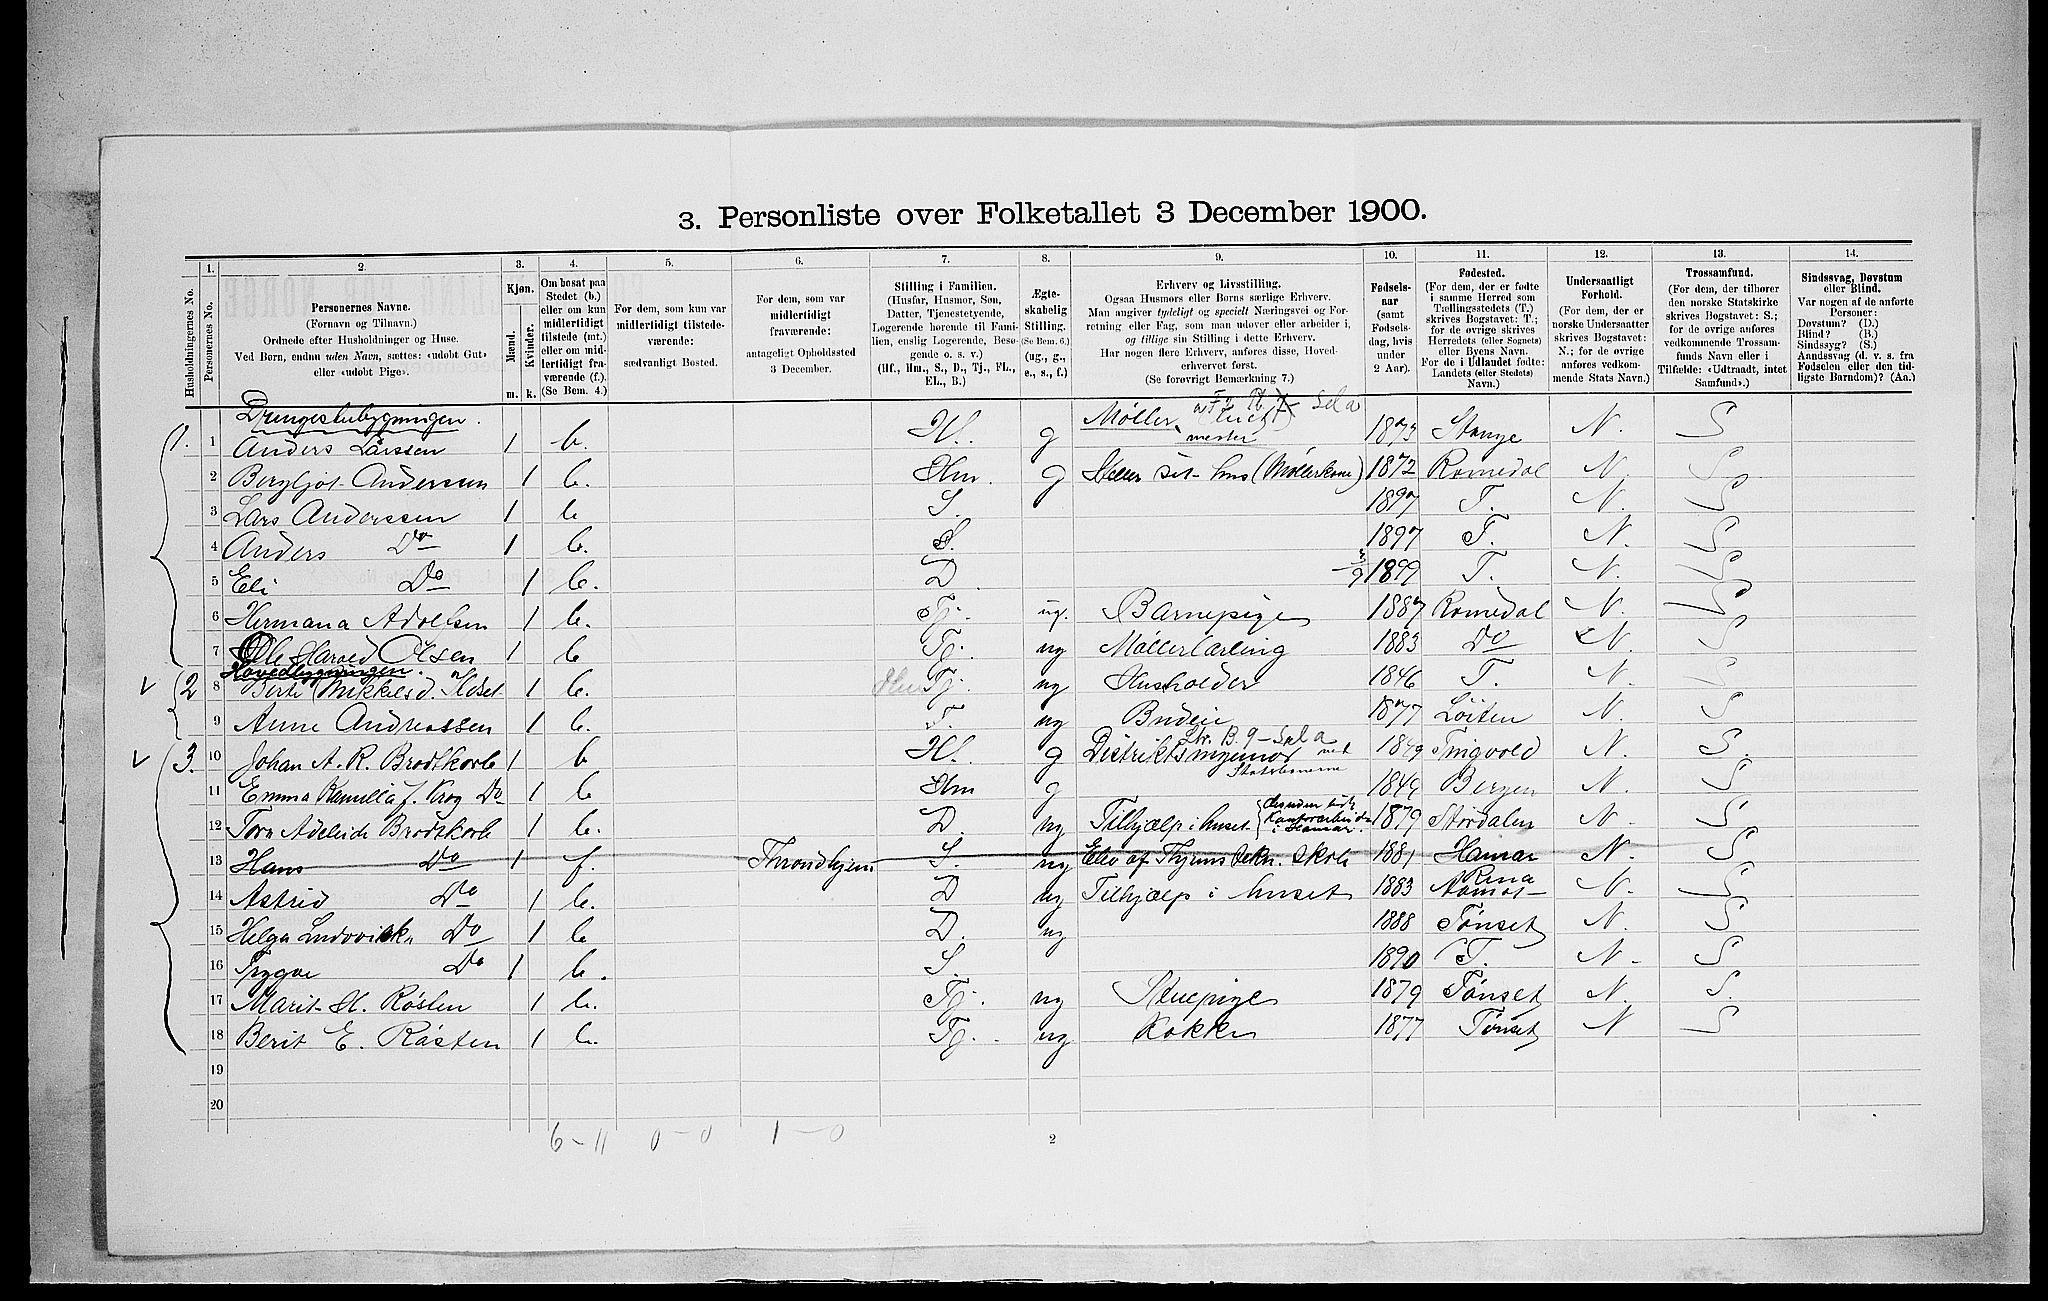 3. Personliste over Folketallet 3 December 1900.
Husholdningernes No.
1. Personernes No.
2. Personernes Navne. (Fornavn og Tilnavn.) Ordnede efter Husholdninger og Huse. Ved Børn, endnu uden Navn, sættes: «udøbt Gut» eller «udøbt Pige».
3. Kjøn. Mænd. Kvinder. m. k.
4. Om bosat paa Stedet (b.) eller om kun midlertidigt tilstede (mt.) eller om midlertidigt fraværende (f.). (Se Bem. 4.)
5. For dem, som kun var midlertidigt tilstedeværende: sædvanligt Bosted.
6. For dem, som var midlertidigt fraværende: antageligt Opholdssted 3 December.
7. Stilling i Familien. (Husfar, Husmor, Søn, Datter, Tjenestetyende, Logerende hørende til Familien, enslig Logerende, Besøgende o. s. v.) (Hf., Hm., S., D., Tj., FL., EL., B.)
8. Ægteskabelig Stilling. (Se Bem. 6.) (ug., g., e., s., f.)
9. Erhverv og Livsstilling. Ogsaa Husmors eller Børns særlige Erhverv. Man angiver tydeligt og specielt Næringsvei og Forretning eller Fag, som man udøver eller arbeider i, og tillige sin Stilling i dette Erhverv. Har nogen flere Erhverv, anføres disse, Hovederhvervet først. (Se forøvrigt Bemærkning 7.)
10. Fødselsaar (samt Fødselsdag, hvis under 2 Aar).
11. Fødested. (For dem, der er fødte i samme Herred som Tællingsstedets (T.) skrives Bogstavet: T.; for de øvrige skrives Herredets (eller Sognets) eller Byens Navn. For de i Udlandet fødte: Landets (eller Stedets) Navn.)
12. Undersaatligt Forhold. (For dem, der er norske Undersaatter skrives Bogstavet: N.; for de øvrige anføres vedkommende Stats Navn.)
13. Trossamfund. (For dem, der tilhører den norske Statskirke skrives Bogstavet: S.; for de øvrige anføres vedkommende Trossamfunds Navn eller i Tilfælde: «Udtraadt, intet Samfund».)
14. Sindssvag, Døvstum eller Blind. Var nogen af de anførte Personer: Døvstum? (D.) Blind? (B.) Sindssyg? (S.) Aandssvag (d. v. s. fra Fødselen eller den tidligste Barndom)? (Aa.)
Drengestubygningen.
1. 1 Anders Larssen 1 b. Hf. g Møllermester 1873 Stange N. S
2 Bergljot Anderssen 1 b. Hm. g Steller sit hus (Møllerkone) 1872 Romedal N. S.
3 Lars Anderssen 1 b S. 1897 T. N. S
4 Anders Do 1 b. S. 1897 T. N. S
5 Eli Do 1 b. D 3/9 1899 T. N. S
6 Hermana Adolfsen 1 b. Tj. ug. Barnepige 1887 Romedal N. S
7 Ole Harald Olsen 1 b Tj. ug Møllerlærling 1883 Do N. S
Hovedbygningen.
2 8 Berte Mikkelsd. 1 b. Tj. ug Husholder 1846 T. N. S
9 Anne Andreassen 1 b. T. ug Budeie 1877 Löiten N. S
3. 10 Johan A. R. Brodtkorb 1 b Hf. g Distriktsingeniør ved Statsbanerne 1849 Tingvold N. S.
11 Emma Kamilla f. Krog Do 1 b Hm g 1849 Bergen N. S
12 Tora Adelaide Brodtkorb 1 b. D. ug Tilhjælp i huset { Kontorarbeide i Hamar. 1879 Størdalen N. S
13 Hans Do 1 f. Throndhjem S. ug Elev af Thjems tekn. Skole 1881 Hamar N. S
14 Astrid Do 1 b. D ug Tilhjælp i huset 1883 Rena Aamot N. S
15 Helga Ludovikke Do 1 b D. ug 1888 Tønset N. S
16 Trygve Do 1 b. S. 1890 T. N. S
17 Marit H. Røsten 1 b. Tj. ug Stuepige 1879 Tønset N. S.
18 Berit E. Røsten 1 b. Tj. ug Kokke 1877 Tønset N S
19
20
6 - 11 0 - 0 1 - 0
2